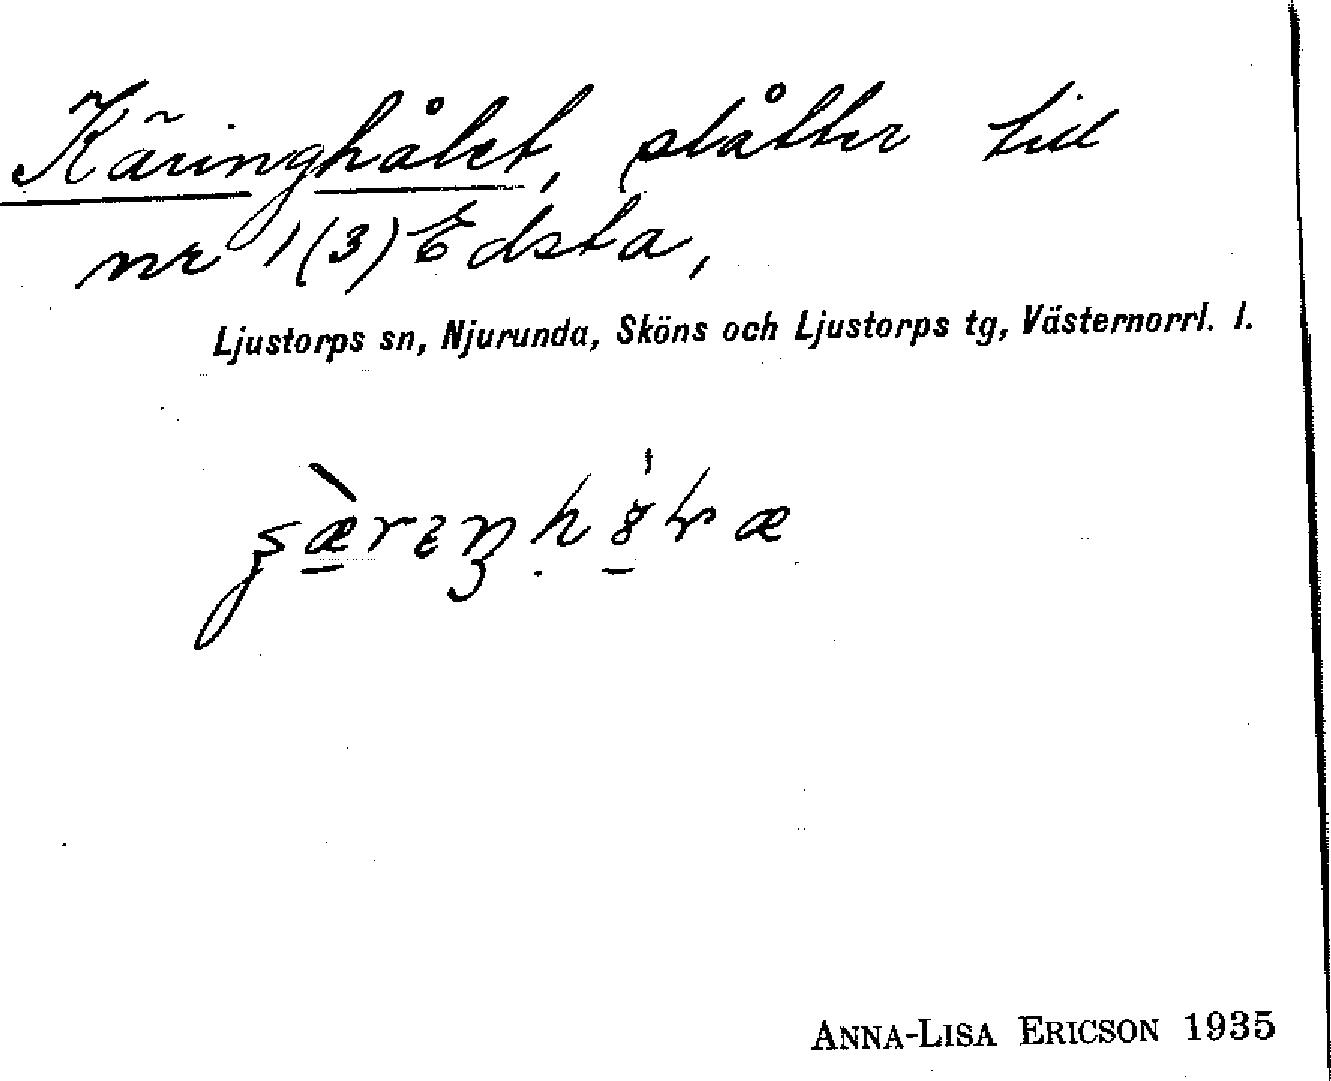 Käringhålet, slåtter till
nr 1(3) Edsta,
Ljustorps sn, Njurunda, Sköns och Ljustorps tg, Västernorrl. l.
ANNA-LISA ERICSON 1935